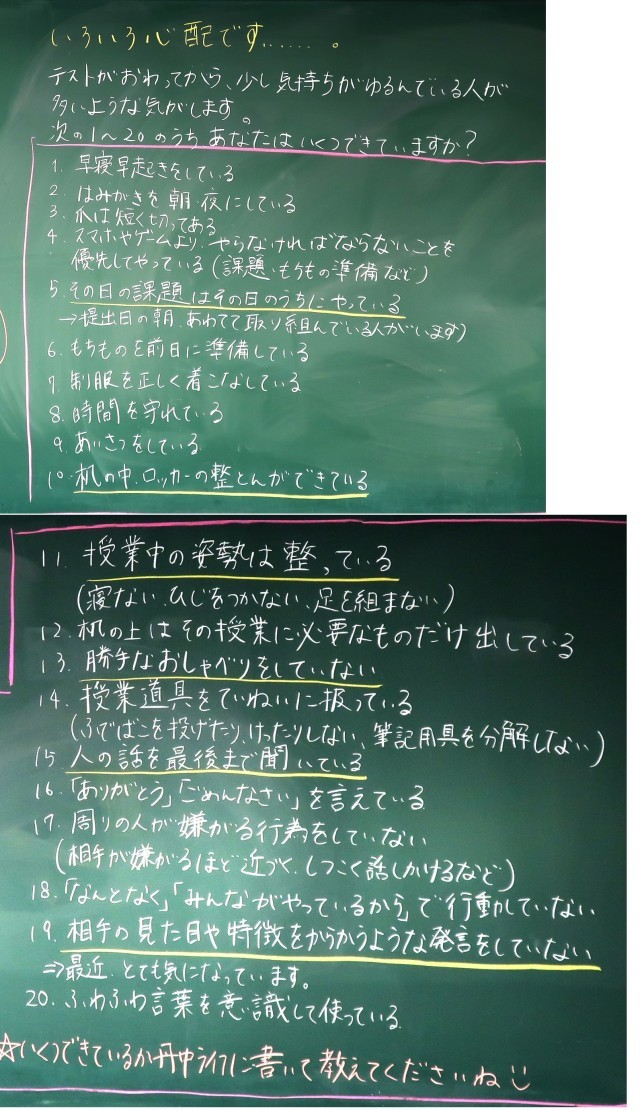 いろいろ心配です……。
テストがおわってから、少し気持ちがゆるんでいる人が
多いような気がします。
次の1～20のうち、あなたはいくつできていますか?
1. 早寝早起きをしている
2. はみがきを朝・夜にしている
3. 爪は短く切ってある
4. スマホやゲームより、やらなければならないことを
優先してやっている(課題、もちもの準備など)
5. その日の課題はその日のうちにやっている
→提出日の朝、あわてて取り組んでいる人がいます)
6. もちものを前日に準備している
7. 制服を正しく着こなしている
8. 時間を守れている
9. あいさつをしている
10. 机の中、ロッカーの整とんができている
11. 授業中の姿勢は整っている
(寝ない、ひじをつかない、足を組まない)
12. 机の上はその授業に必要なものだけ出している
13. 勝手なおしゃべりをしていない
14. 授業道具をていねいに扱っている
(ふでばこを投げたり、けったりしない、筆記用具を分解しない)
15 人の話を最後まで聞いている
16.「ありがとう」「ごめんなさい」を言えている
17. 周りの人が嫌がる行為をしていない
(相手が嫌がるほど近づく、しつこく話しかけるなど)
18.「なんとなく」「みんながやっているから」で行動していない
19. 相手の見た目や特徴をからかうような発言をしていない
⇒最近、とても気になっています。
20. ふわふわ言葉を意識して使っている
☆いくつできているか丹中ライフに書いて教えてくださいね